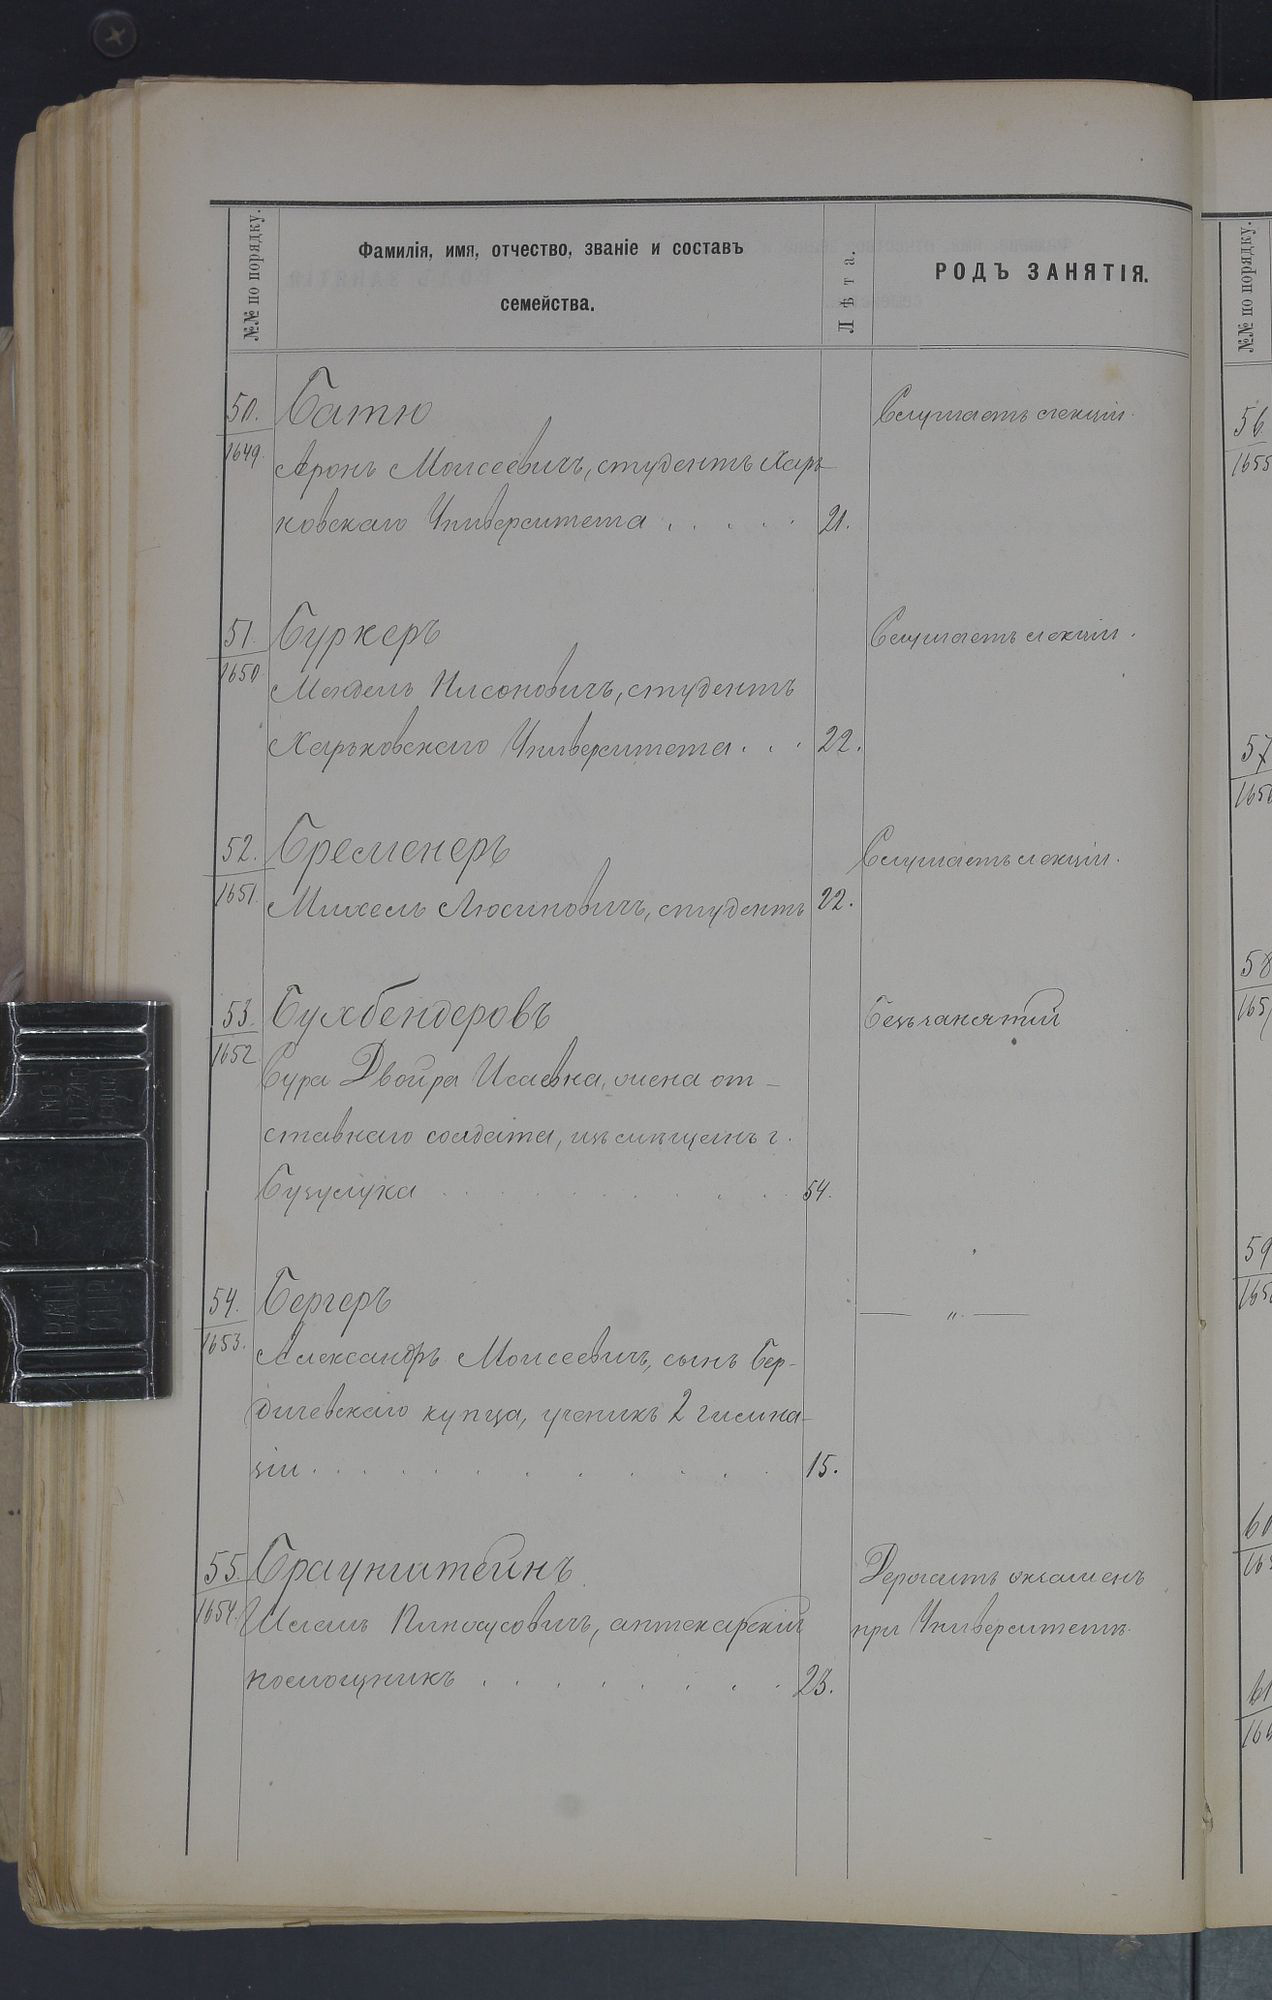 №№ по порядку.
Фамилія, имя, отчество, званіе и составъ
семейства.
Лѣта.
РОДЪ ЗАНЯТІЯ.
50.
1649.
Батю
Слушаетъ лекціи.
Аронъ Моисеевичъ, студентъ Харь-
ковскаго Университета . . . . . 21.
51.
1650
Буркеръ
Слушаетъ лекціи.
Мендель Нисоновичъ, студентъ
Харьковскаго Университета . . . 22.
52.
1651.
Бременеръ
Слушаетъ лекціи.
Михель Люсиновичъ, студентъ 22.
53.
1652
Бухбендеровъ
Безъ занятій
Сура Двойра Исаевна, жена от-
ставнаго солдата, изъ мѣщанъ г.
Бузулука . . . . . . . . . . 54.
54.
1653.
Бергеръ
— „ —
Александръ Моисеевичъ, сынъ Бер-
дичевскаго купца, ученикъ 2 гимна-
зіи . . . . . . . . . . . . 15.
55.
1654.
Браунштейнъ
Держитъ экзаменъ
при Университетѣ.
Пинхусовичъ, аптекарскій
помощникъ . . . . . . . . 23.
№№ по порядку.
56
1655
57
1656
58
165
59
165
60
61